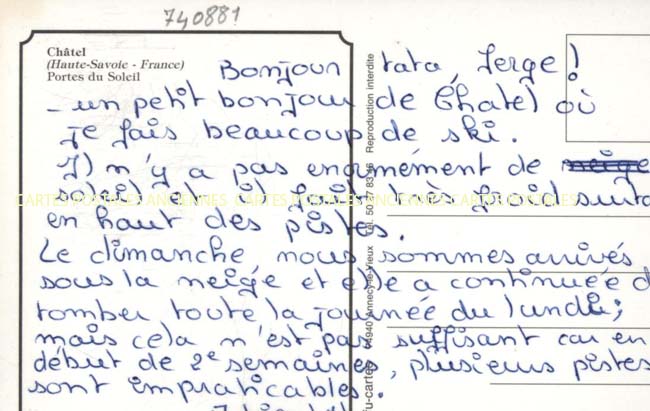 740881
Châtel
(Haute-Savoie - France)
Portes du Soleil
Bonjour tata, Serge!
- un petit bonjour de Chatel où
je fais beaucoup de ski.
Il n'y a pas enormément de neige
soleil et il fait très froid surto
en haut des pistes.
Le dimanche nous sommes arrivés
sous la neige et elle a continuée d
tomber toute la journée du lundi;
mais cela n'est pas suffisant car en
début de 2e semaines, plusieurs pistes
sont impraticables.
Reproduction interdite
Tél. 50 27 83
74940 Annecy-le-Vieux
CARTES POSTALES ANCIENNES CARTES POSTALES ANCIENNES CARTES POSTALES ANCIENNES